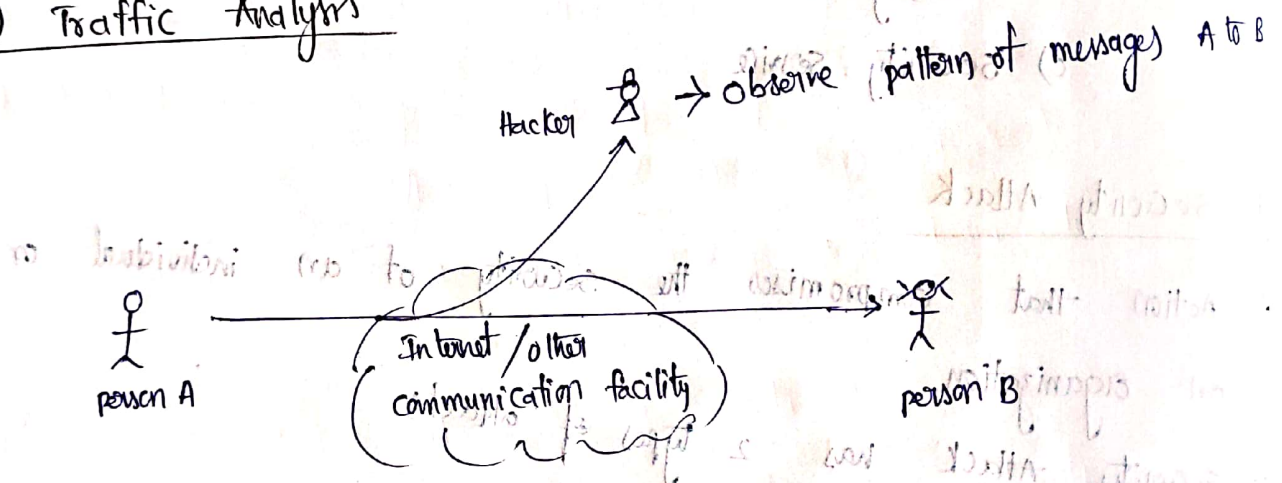 ) Traffic Analysis
Hacker → observe pattern of messages A to B
Internet / other
communication facility
person A
person B